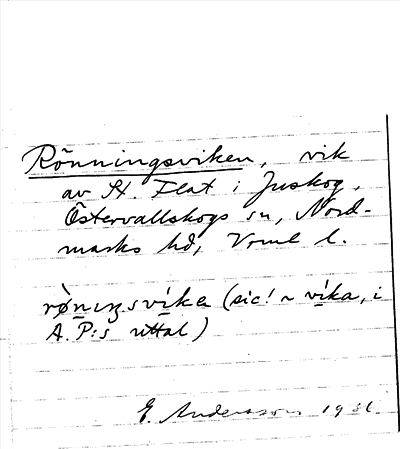 Rönningsviken, vik
av St. Flat i Juskog,
Östervallskogs sn, Nord-
marks hd, Vrml l.
rø̀nıŋsvíka (sic! ~ víka, i
A. P:s uttal)
E. Andersson 1936.